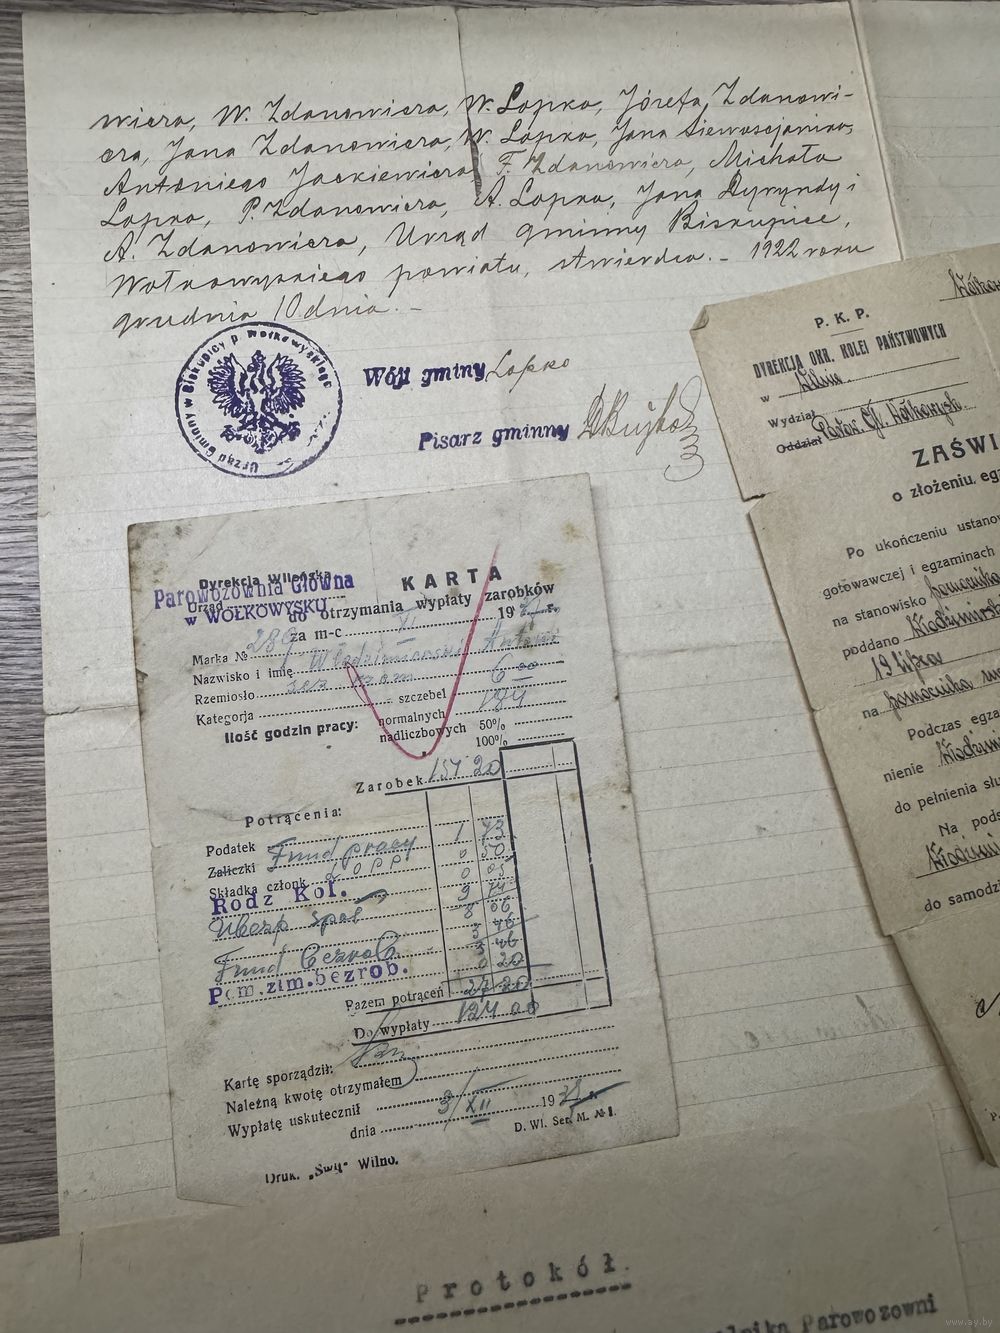 wicza, W. Zdanowicza, W. Łopko, Józefa Zdanowi-
cza, Jana Zdanowicza, W. Łopko, Jana
Antoniego Jackiewicza F. Zdanowicza, Michała
Łopko, P. Zdanowicza, A. Łopko, Jana i
A. Zdanowicza, Urząd gminny Biskupice,
Wołkowyskiego powiatu, stwierdza. – 1922 roku
grudnia 10 dnia. –
Urząd Gminny w Biskupicy p. Wołkowyskiego
Wójt gminy Łopko
Pisarz gminny
Dyrekcja Wileńska
Parowozownia Główna
Urząd
w WOŁKOWYSKU
KARTA
do otrzymania wypłaty zarobków
za m-c XI 19
Marka № 289
Nazwisko i imię Włodzimierski Antoni
Rzemiosło
Kategorja szczebel 6
Ilość godzin pracy: normalnych 184
nadliczbowych 50%
100%
Zarobek 151 20
Potrącenia:
Podatek 1 73
Zaliczki Fund pracy 0 50
Składka członk. LOPP 0 05
Rodz Kol. 9 74
Ubezp społ 8 06
3 46
Fund Bezrob 3 46
Pom.zim.bezrob. 0 20
Razem potrąceń 27 20
Do wypłaty 124 00
Kartę sporządził:
Należną kwotę otrzymałem
Wypłatę uskutecznił
dnia 3/XII 19
D. Wl. Ser. M. № 1.
Druk. „Świt" Wilno.
P. K. P.
DYREKCJA OKR. KOLEI PAŃSTWOWYCH
w Wilnie
Wydział
Oddział Parow. Gł. Wołkowysk
ZAŚWI
o złożeniu egz
Po ukończeniu ustano
gotowawczej i egzaminach
na stanowisko pomocnika
poddano Włodzimiersk
19 lipca
na pomocnika
Podczas egza
nienie Włodzimi
do pełnienia słu
Na pods
Włodzimi
do samodzi
Protokół.
Parowozowni
www.ay.by